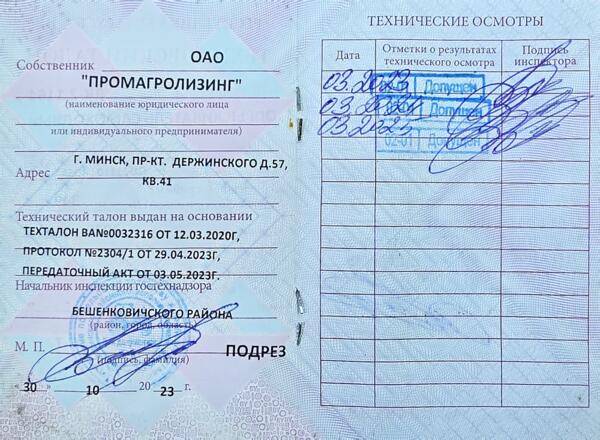 Собственник ОАО
"ПРОМАГРОЛИЗИНГ"
(наименование юридического лица
или индивидуального предпринимателя)
Г. МИНСК, ПР-КТ. ДЕРЖИНСКОГО Д.57,
Адрес КВ.41
Технический талон выдан на основании
ТЕХТАЛОН ВА№0032316 ОТ 12.03.2020Г,
ПРОТОКОЛ №2304/1 ОТ 29.04.2023Г,
ПЕРЕДАТОЧНЫЙ АКТ ОТ 03.05.2023Г.
Начальник инспекции гостехнадзора
БЕШЕНКОВИЧСКОГО РАЙОНА
(район, город, область)
М. П. ПОДРЕЗ
(подпись, фамилия)
30 » 10 2023 г.
ТЕХНИЧЕСКИЕ ОСМОТРЫ
Дата Отметки о результатах технического осмотра Подпись инспектора
03.2023 Допущен
03.2024 Допущен
03.2023 02-01 Допущен